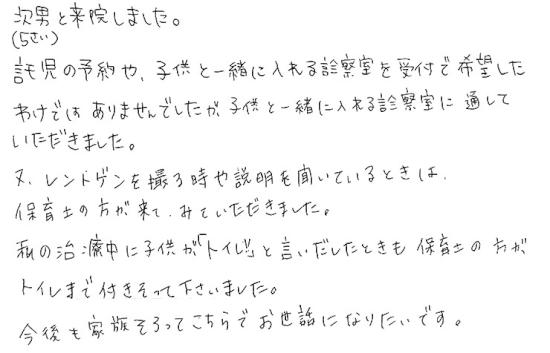 次男と来院しました。
(5さい)
託児の予約や、子供と一緒に入れる診察室を受付で希望した
わけではありませんでしたが、子供と一緒に入れる診察室に通して
いただきました。
又、レントゲンを撮る時や説明を聞いているときは、
保育士の方が来て、みていただきました。
私の治療中に子供が「トイレ!」と言いだしたときも保育士の方が
トイレまで付きそって下さいました。
今後も家族そろってこちらでお世話になりたいです。